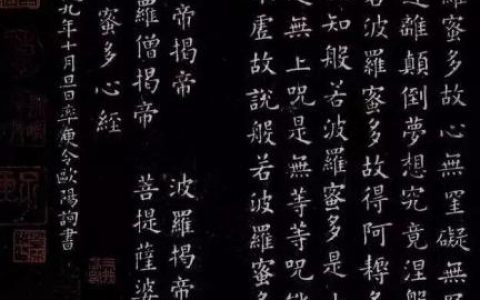 羅蜜多故心無罣礙無
遠離顛倒夢想究竟涅槃
若波羅蜜多故得阿耨多
知般若波羅蜜多是
是無上咒是無等等咒能
虛故說般若波羅蜜多
帝揭帝 波羅揭帝
羅僧揭帝 菩提薩婆
蜜多心經
九年十月旦日率更令歐陽詢書